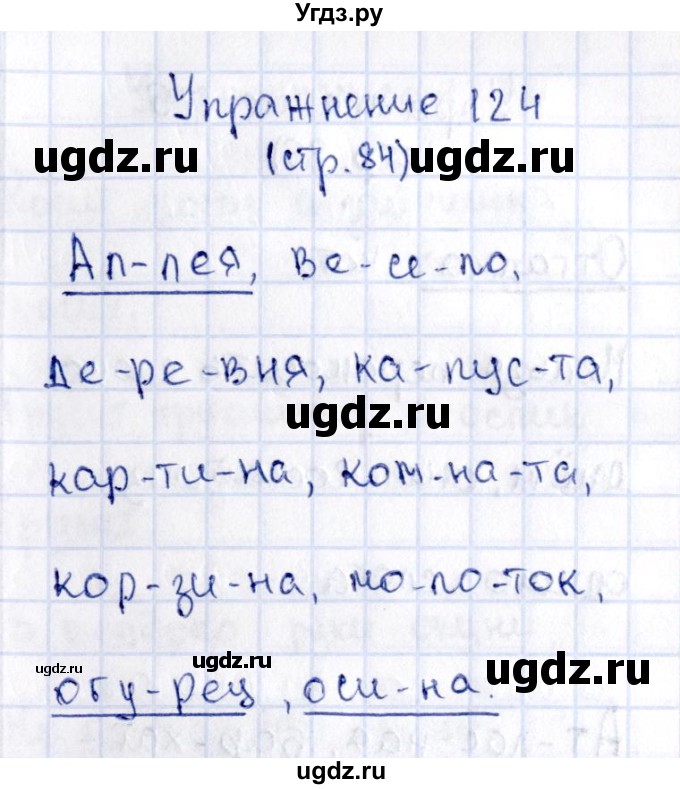 Угдз.ру
Упражнение 124
ugdz.ru (стр.84) ugdz.ru
Ал-лея, ве-се-ло,
де-ре-вня, ка-пус-та,
ugdz.ru
кар-ти-на, ком-на-та,
кор-зи-на, мо-ло-ток,
ugdz.ru ugdz.ru ugdz.ru
огу-рец, оси-на.
ugdz.ru